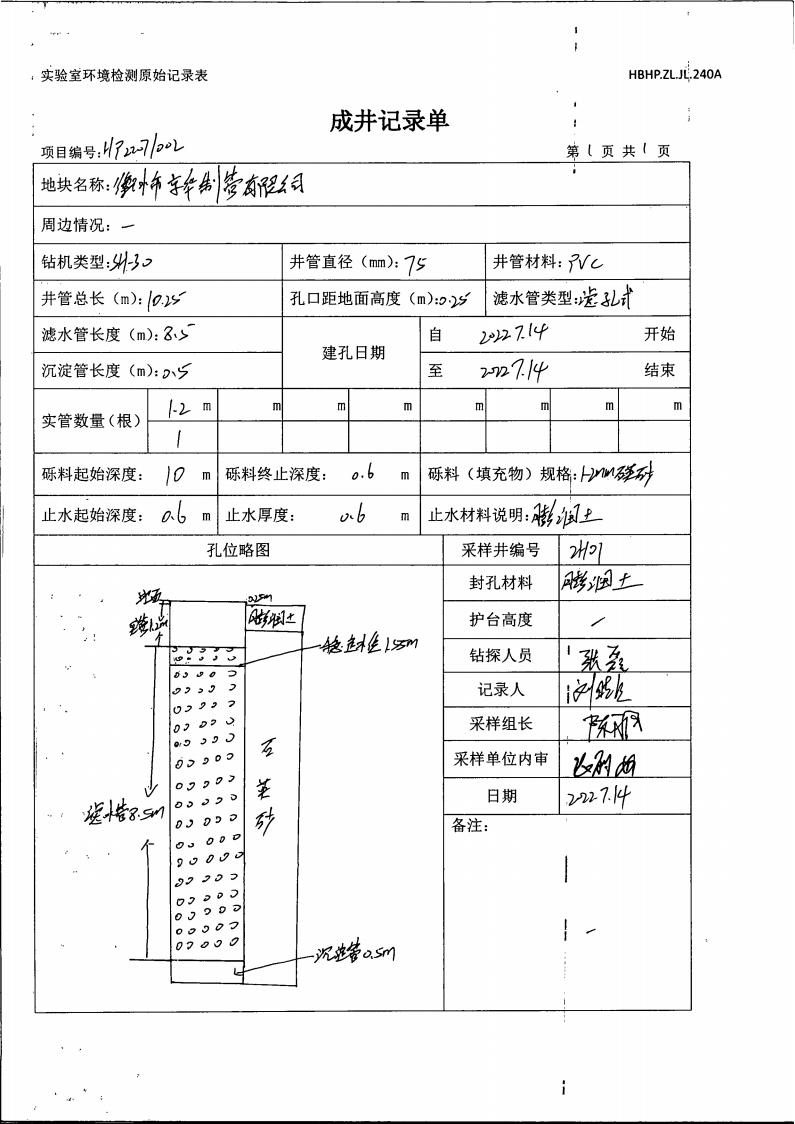 实验室环境检测原始记录表 HBHP.ZL.JL.240A
成井记录单
项目编号:HP22071002 第 1 页 共 1 页
地块名称:衡水市京华制管有限公司
周边情况: —
钻机类型:SH-30 井管直径（mm）: 75 井管材料: PVC
井管总长（m）: 10.25 孔口距地面高度（m）:0.25 滤水管类型:滤孔式
滤水管长度（m）: 8.5 建孔日期 自 2022.7.14 开始
沉淀管长度（m）: 0.5 至 2022.7.14 结束
实管数量（根） 1.2 m m m m m m m m
1
砾料起始深度: 10 m 砾料终止深度: 0.6 m 砾料（填充物）规格:1-2mm石英砂
止水起始深度: 0.6 m 止水厚度: 0.6 m 止水材料说明:膨润土
孔位略图 采样井编号 2H01
封孔材料 膨润土
护台高度 /
钻探人员 张磊
记录人
采样组长
采样单位内审
日期 2022.7.14
备注: —
地面 0.25m
实管1.2m 膨润土
稳定水位1.55m
石英砂
滤水管8.5m
沉淀管0.5m